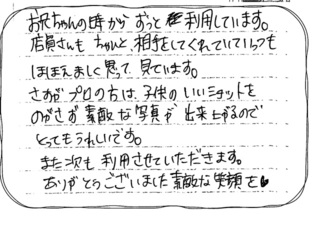 お兄ちゃんの時から ずっと 利用しています。
店員さんも ちゃんと 相手をしてくれていていつも
ほほえましく思って 見ています。
さすがプロの方は、子供の いいショットを
のがさず 素敵な写真が 出来上がるので
とってもうれしいです。
また次も 利用させていただきます。
ありがとうございました 素敵な 笑顔を